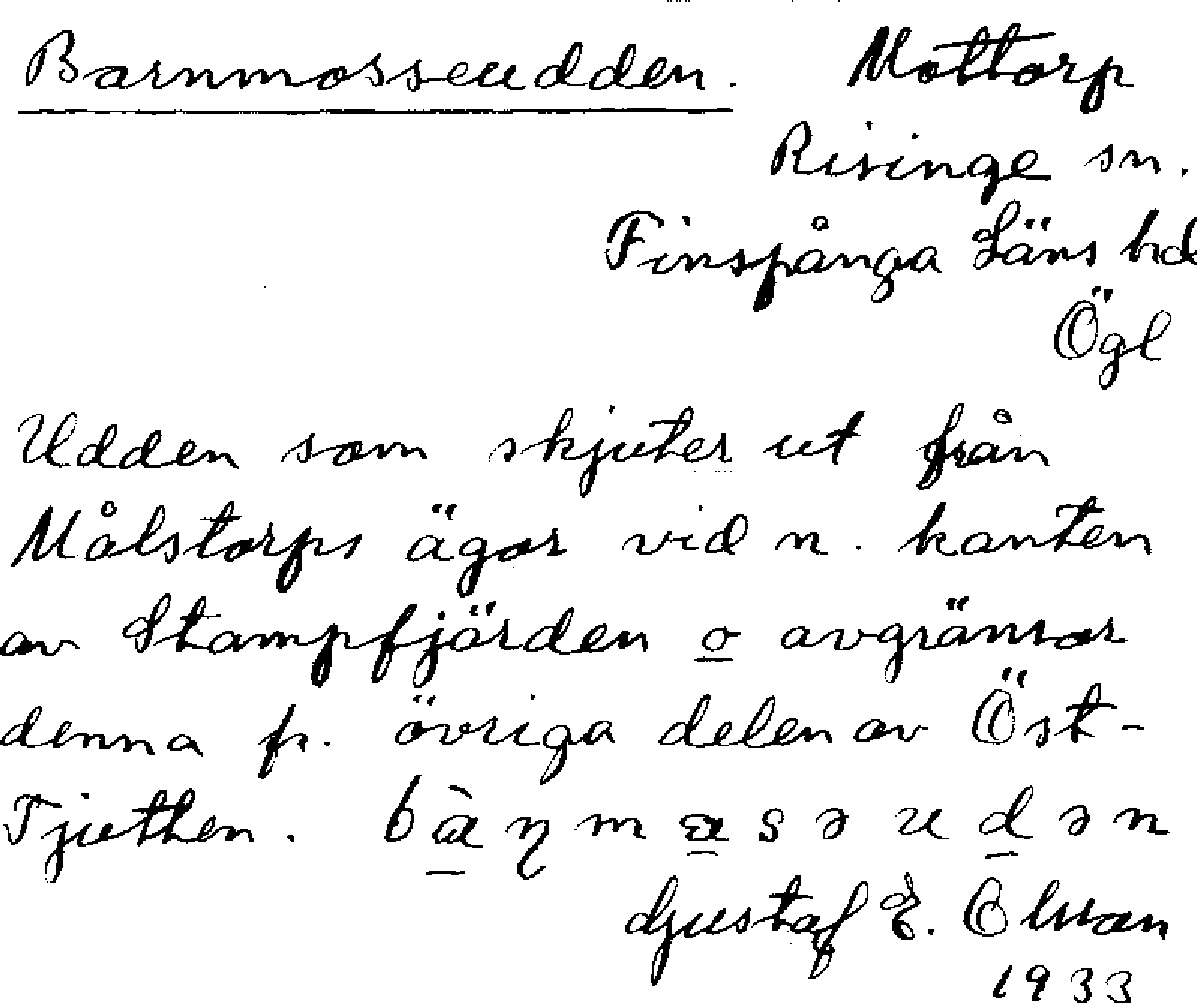 Barnmosseudden. Mottorp
Risinge sn.
Finspånga Läns hd
Ögl
Udden som skjuter ut från
Målstorps ägor vid n. kanten
av Stampfjärden o avgränsar
denna fr. övriga delen av Öst-
Tjuthen.
Gustaf E. Olsson
1933